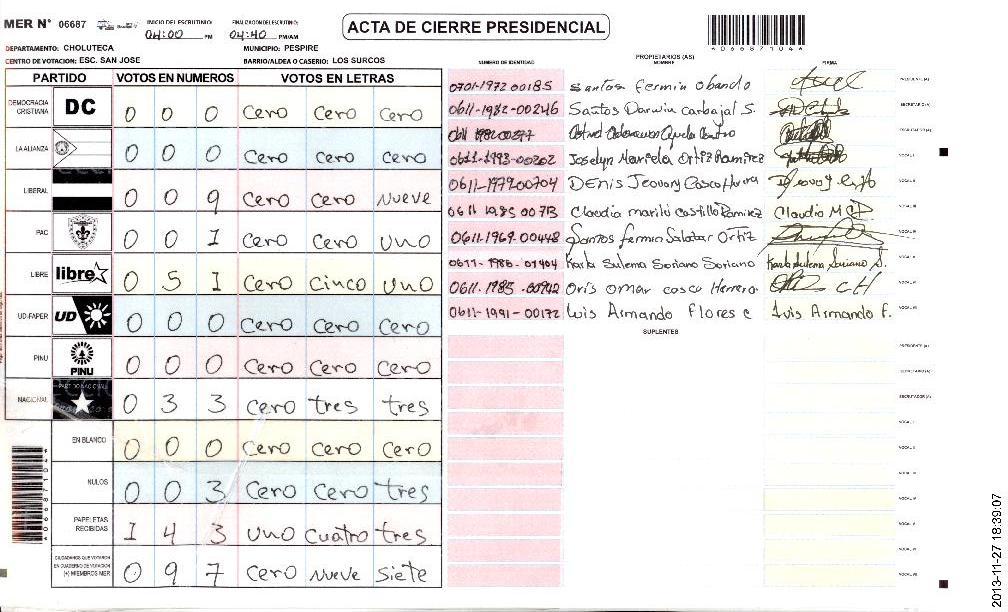 MER N° 06687 INICIO DEL ESCRUTINIO: 04:00 PM FINALIZACION DEL ESCRUTINIO: 04:40 PM/AM ACTA DE CIERRE PRESIDENCIAL
DEPARTAMENTO: CHOLUTECA MUNICIPIO: PESPIRE
CENTRO DE VOTACION: ESC. SAN JOSE BARRIO/ALDEA O CASERIO: LOS SURCOS
PARTIDO VOTOS EN NUMEROS VOTOS EN LETRAS
DEMOCRACIA CRISTIANA DC 0 0 0 Cero Cero Cero
LA ALIANZA 0 0 0 Cero Cero Cero
LIBERAL 0 0 9 Cero Cero Nueve
PAC 0 0 1 Cero Cero Uno
LIBRE libre 0 5 1 Cero Cinco Uno
UD-FAPER UD 0 0 0 Cero Cero Cero
PINU PINU 0 0 0 Cero Cero Cero
NACIONAL PARTIDO NACIONAL 0 3 3 Cero tres tres
EN BLANCO 0 0 0 Cero Cero Cero
NULOS 0 0 3 Cero Cero tres
PAPELETAS RECIBIDAS 1 4 3 Uno Cuatro tres
CIUDADANOS QUE VOTARON EN CUADERNO DE VOTACION (+) MIEMBROS MER 0 9 7 Cero Nueve Siete
PROPIETARIOS (AS)
NUMERO DE IDENTIDAD NOMBRE FIRMA
0701-1972 00185 Santos Fermin Obando PRESIDENTE (A)
0611-1982-00246 Santos Darwin Carbajal S. SECRETARIO (A)
ESCRUTADOR (A)
0611-1993-00202 Joselyn Mariela Ortiz Ramirez VOCAL I
0611-1979 00704 Denis Jeovany VOCAL II
0611 1985 00713 Claudia Castillo Ramirez Claudia M
0611-1969-00448 Santos Fermin Salazar Ortiz
0611-1986-01404 Karla Sulema Soriano Soriano Karla Sulema Soriano S.
0611-1985-00942 Oris Omar Casco Herrera
0611-1991-00172 Luis Armando Flores C Luis Armando F.
SUPLENTES
PRESIDENTE (A)
SECRETARIO (A)
ESCRUTADOR (A)
2013-11-27 18:39:07